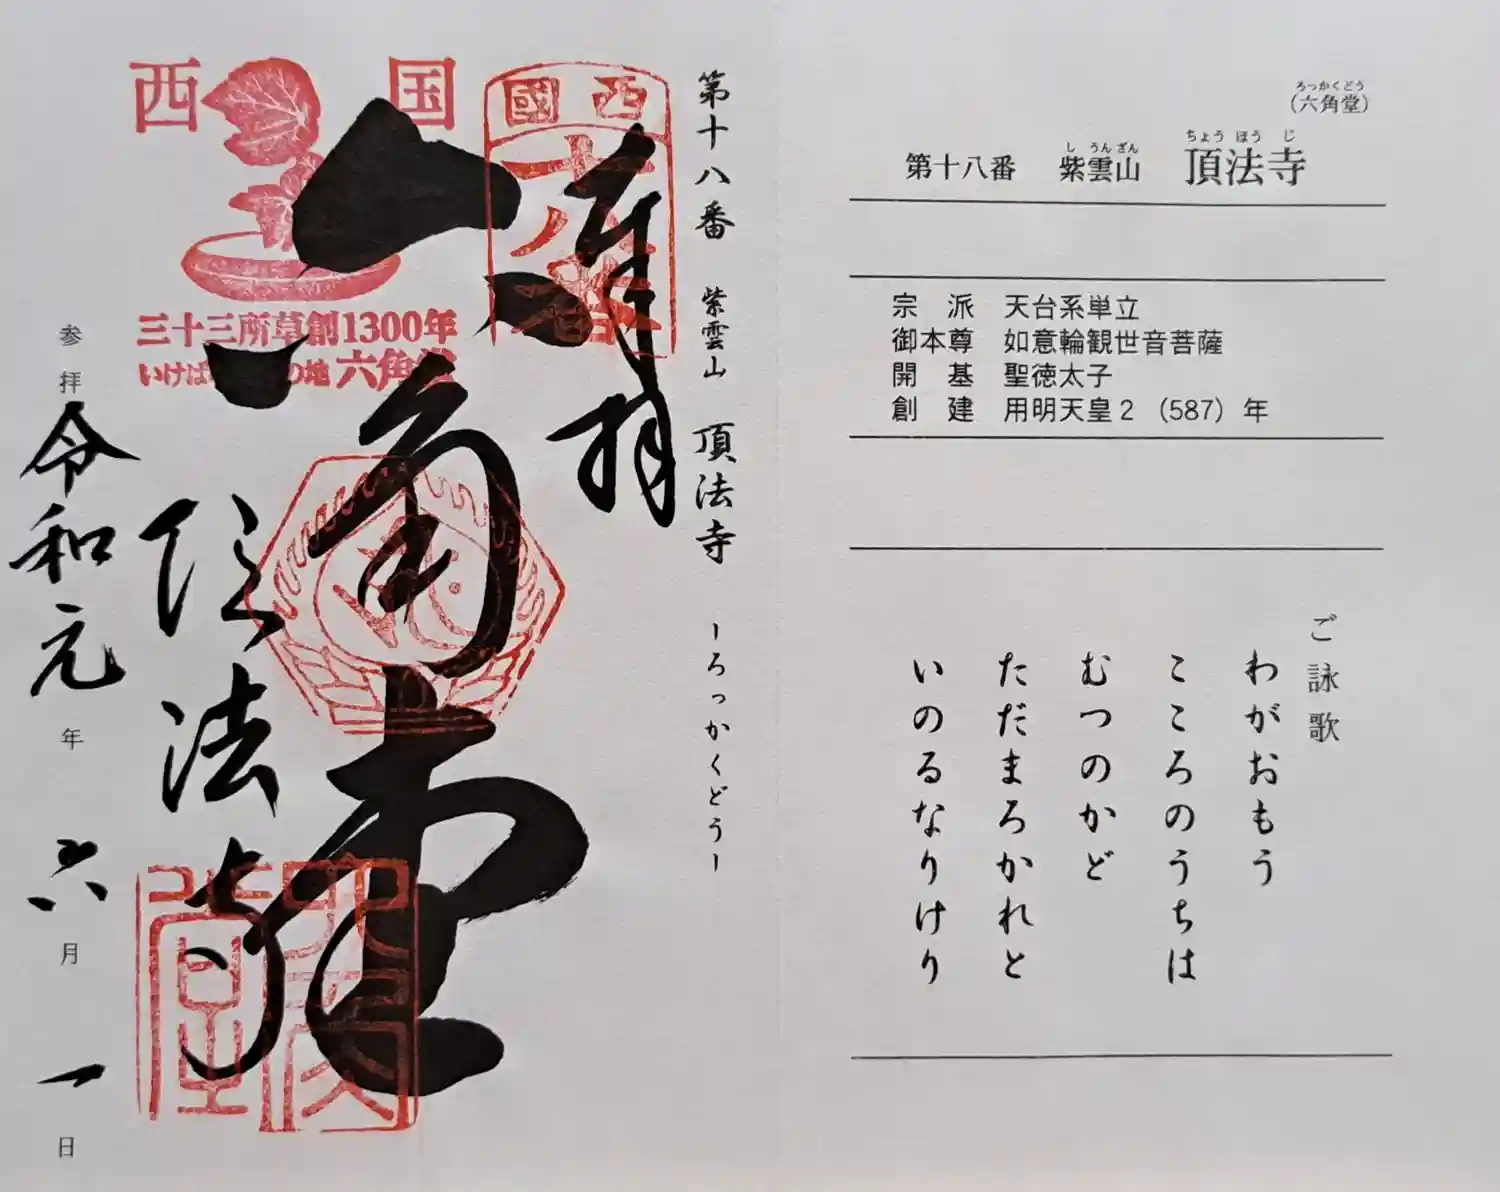 (六角堂)
ろっかくどう
第十八番 紫雲山 頂法寺
し うん ざん ちょう ほう じ
宗 派 天台系単立
御本尊 如意輪観世音菩薩
開 基 聖徳太子
創 建 用明天皇2 (587) 年
ご詠歌
わがおもう
こころのうちは
むつのかど
ただまろかれと
いのるなりけり
第十八番 紫雲山 頂法寺 ーろっかくどうー
奉拝
西國
十八番
六角堂
西国
三十三所草創1300年
いけばなの地 六角堂
頂法寺
六角堂
参拝 令和元年 六月 一日